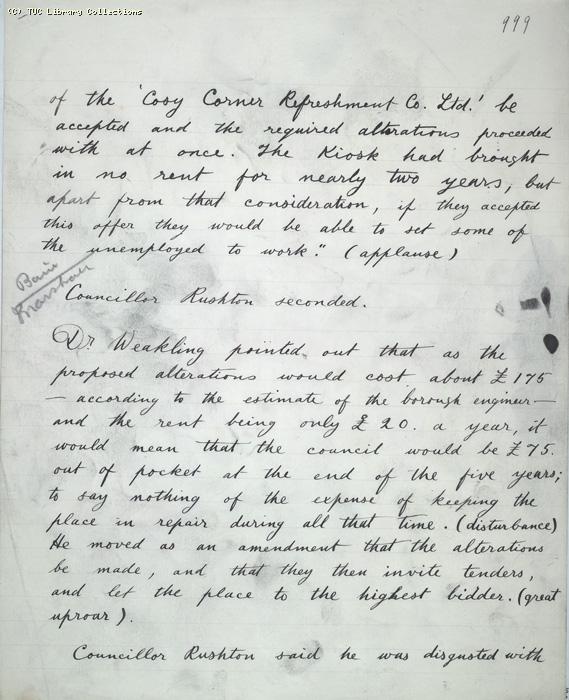 (C) TUC Library Collections
999
of the 'Cosy Corner Refreshment Co. Ltd.' be
accepted and the required alterations proceeded
with at once. The Kiosk had brought
in no rent for nearly two years, but
apart from that consideration, if they accepted
this offer they would be able to set some of
the unemployed to work." (applause)
Bain
Marshall
Councillor Rushton seconded.
Dr. Weakling pointed out that as the
proposed alterations would cost about £175
— according to the estimate of the borough engineer —
and the rent being only £20. a year, it
would mean that the council would be £75.
out of pocket at the end of the five years;
to say nothing of the expense of keeping the
place in repair during all that time. (disturbance)
He moved as an amendment that the alterations
be made, and that they then invite tenders,
and let the place to the highest bidder. (great
uproar).
Councillor Rushton said he was disgusted with